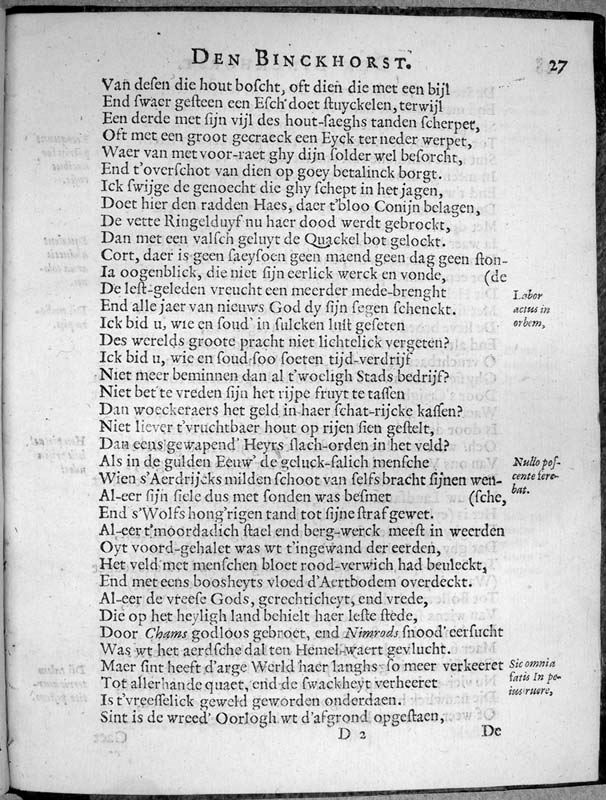 DEN BINCKHORST. 27
Van desen die hout boscht, oft dien die met een bijl
End swaer gesteen een Esch doet stuyckelen, terwijl
Een derde met sijn vijl des hout-saeghs tanden scherpet,
Oft met een groot gecraeck een Eyck ter neder werpet,
Waer van met voor-raet ghy dijn solder wel besorcht,
End t'overschot van dien op goey betalinck borgt.
Ick swijge de genoecht die ghy schept in het jagen,
Doet hier den radden Haes, daer t'bloo Conijn belagen,
De vette Ringelduyf nu haer dood werdt gebrockt,
Dan met een valsch geluyt de Quackel bot gelockt.
Cort, daer is geen saeysoen geen maend geen dag geen ston-
Ia oogenblick, die niet sijn eerlick werck en vonde, (de
De lest-geleden vreucht een meerder mede-brenght
End alle jaer van nieuws God dy sijn segen schenckt.
Labor
actus in
orbem,
Ick bid u, wie en soud' in sulcken lust geseten
Des werelds groote pracht niet lichtelick vergeten?
Ick bid u, wie en soud soo soeten tijd-verdrijf
Niet meer beminnen dan al t'woeligh Stads bedrijf?
Niet bet te vreden sijn het rijpe fruyt te tassen
Dan woeckeraers het geld in haer schat-rijcke kassen?
Niet liever t'vruchtbaer hout op rijen sien gestelt,
Dan eens gewapend' Heyrs slach-orden in het veld?
Als in de gulden Eeuw' de geluck-salich mensche
Wien s'Aerdrijcks milden schoot van selfs bracht sijnen wen-
Al-eer sijn siele dus met sonden was besmet (sche,
Nullo pos-
cente fere-
bat.
End s'Wolfs hong'rigen tand tot sijne straf gewet.
Al-eer t'moordadich stael end berg-werck meest in weerden
Oyt voord-gehalet was wt t'ingewand der eerden,
Het veld met menschen bloet rood-verwich had beuleckt,
End met eens boosheyts vloed d'Aertbodem overdeckt.
Al-eer de vreese Gods, gerechticheyt, end vrede,
Die op het heyligh land behielt haer leste stede,
Door Chams godloos gebroet, end Nimrods snood' eersucht
Was wt het aerdsche dal ten Hemel-waert gevlucht.
Maer sint heeft d'arge Werld haer langhs so meer verkeeret
Tot allerhande quaet, end de swackheyt verheeret
Is t'vreesselick geweld geworden onderdaen.
Sic omnia
fatis In pe-
ius ruere,
Sint is de wreed' Oorlogh wt d'afgrond opgestaen,
D 2 De